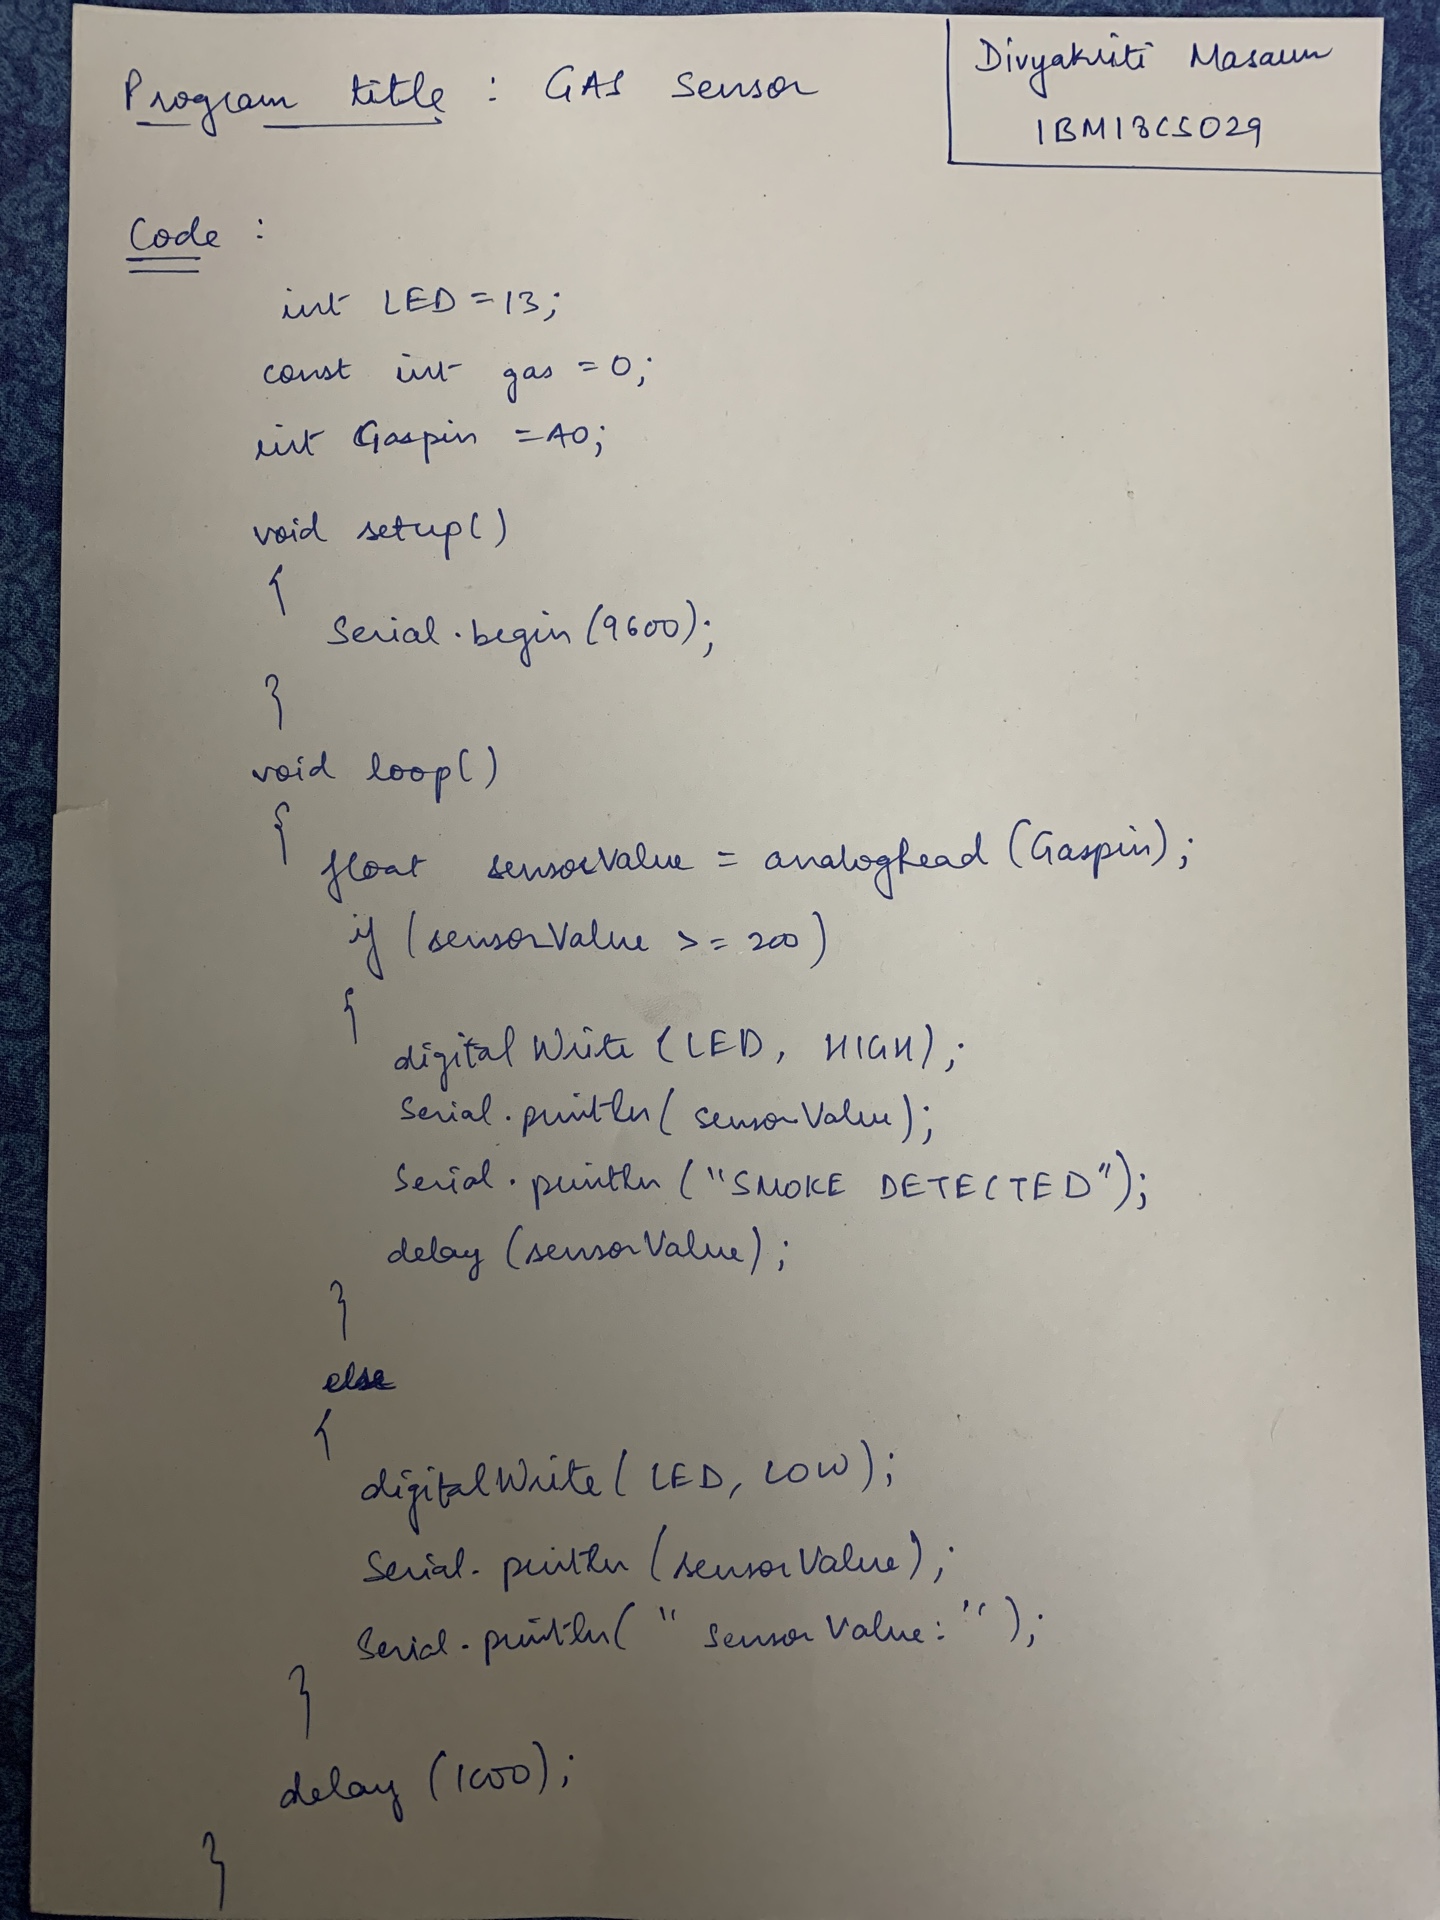 Program title : GAS Sensor
Divyakriti Masaun
1BM18CS029
Code :
int LED = 13;
const int gas = 0;
int Gaspin = A0;
void setup()
{
Serial.begin(9600);
}
void loop()
{
float sensorValue = analogRead (Gaspin);
if (sensorValue >= 200)
{
digitalWrite (LED, HIGH);
Serial.println( sensorValue);
Serial.println ("SMOKE DETECTED");
delay (sensorValue);
}
else
{
digitalWrite( LED, LOW);
Serial.println (sensorValue);
Serial.println( " Sensor Value: " );
}
delay (1000);
}